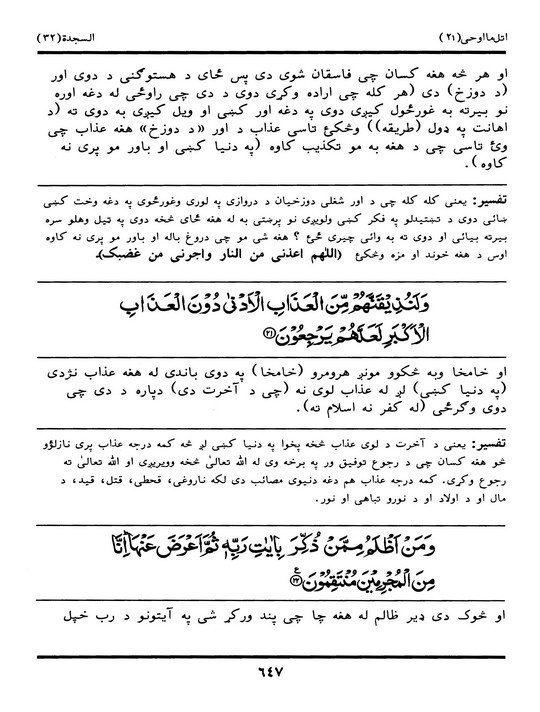 اتل ما اوحی (٢١) السجدة (٣٢)
او هر څه هغه کسان چی فاسقان شوی دی پس ځای د هستوګنی د دوی اور
(د دوزخ) دی (هر کله چی اراده وکړی دوی د دی چی راوځی له دغه اوره
نو بیرته به غورځول کیږی دوی په دغه اور کښی او ویل کیږی به دوی ته (د
اهانت په ډول (طریقه)) وڅکئ تاسی عذاب د اور «د دوزخ» هغه عذاب چی
وئ تاسی چی د هغه به مو تکذیب کاوه (په دنیا کښی او باور مو پری نه
کاوه).
تفسیر: یعنی کله کله چی د اور شغلی دوزخیان د دروازی په لوری وغورځوی په دغه وخت کښی
ښائی دوی د تښتیدلو په فکر کښی ولویږی نو پرښتی به له هغه ځای څخه دوی په ټیل وهلو سره
بیرته بیائی او دوی ته به وائی چیری ځئ ؟ هغه شی مو چی دروغ باله او باور مو پری نه کاوه
اوس د هغه خوند او مزه وڅکئ (اللهم اعذنی من النار واجرنی من غضبک).
وَلَنُذِيْقَنَّهُمْ مِّنَ الْعَذَابِ الْاَدْنٰى دُوْنَ الْعَذَابِ
الْاَكْبَرِ لَعَلَّهُمْ يَرْجِعُوْنَ ﴿٢١﴾
او خامخا وبه څکوو مونږ هرومرو (خامخا) په دوی باندی له هغه عذاب نژدی
(په دنیا کښی) لږ له عذاب لوی نه (چی د آخرت دی) دپاره د دی چی
دوی وګرځی (له کفر نه اسلام ته).
تفسیر: یعنی د آخرت د لوی عذاب څخه پخوا په دنیا کښی لږ څه کمه درجه عذاب پری نازلوؤ
څو هغه کسان چی د رجوع توفیق ور په برخه وی له الله تعالیٰ څخه وویریږی او الله تعالیٰ ته
رجوع وکړی. کمه درجه عذاب هم دغه دنیوی مصائب دی لکه ناروغی، قحطی، قتل، قید، د
مال او د اولاد او د نورو تباهی او نور.
وَمَنْ اَظْلَمُ مِمَّنْ ذُكِّرَ بِاٰيٰتِ رَبِّهٖ ثُمَّ اَعْرَضَ عَنْهَا اِنَّا
مِنَ الْمُجْرِمِيْنَ مُنْتَقِمُوْنَ ﴿٢٢﴾ ع
او څوک دی ډیر ظالم له هغه چا چی پند ورکړ شی په آیتونو د رب خپل
٦٤٧